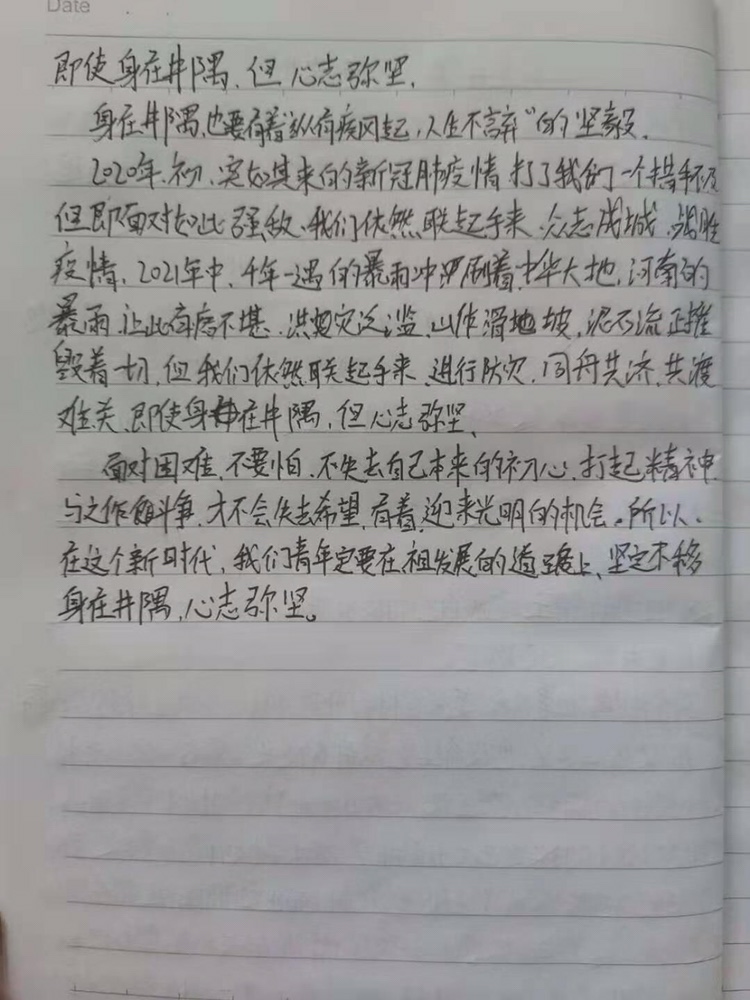 Date
即使身在井隅,但心志弥坚,
身在井隅,也要有着"纵有疾风起,人生不言弃"的坚毅.
2020年初,突如其来的新冠肺疫情打了我们一个措手不及
但即面对如此强敌,我们依然联起手来,众志成城,战胜
疫情,2021年中,千年一遇的暴雨冲刷着中华大地,河南的
暴雨,让此 不堪,洪灾泛滥,山体滑坡,泥石流正摧
毁着一切,但我们依然联起手来,进行防灾,同舟共济,共渡
难关,即使身在井隅,但心志弥坚,
面对困难,不要怕,不失去自己本来的初心,打起精神
与之作斗争,才不会失去希望,有着迎来光明的机会。所以,
在这个新时代,我们青年定要在祖发展的道路上,坚定不移
身在井隅,心志弥坚。